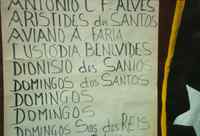 ANTONIO L F ALVES
ARISTIDES dos SANTOS
AVIANO A. FARIA
CUSTÓDIA BENUVIDES
DIONISIO dos SANTOS
DOMINGOS dos SANTOS
DOMINGOS
DOMINGOS
DOMINGOS dos REIS